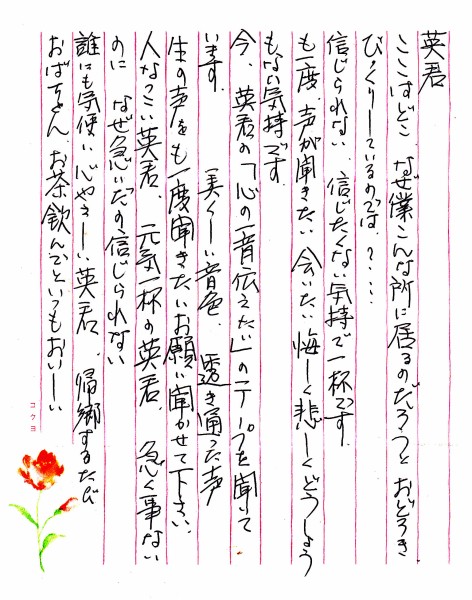 英君
ここはどこ なぜ僕こんな所に居るのだろうと おどろき
びっくりしているのでは？・・・・
信じられない、信じたくない気持で一杯です
も一度、声が聞きたい 会いたい 悔しく悲しくどうしよう
もない気持です。
今、英君の「心の一音伝えたい」のテープを聞いて
います。 美くしい音色、透き通った声
生の声をも一度聞きたいお願い聞かせて下さい、
人なつこい英君、元気一杯の英君、急ぐ事ない
のに なぜ急いだの信じられない
誰にも気使い心やさしい英君、帰郷するたび
おばちゃん、お茶飲んでといつもおいしい
コクヨ